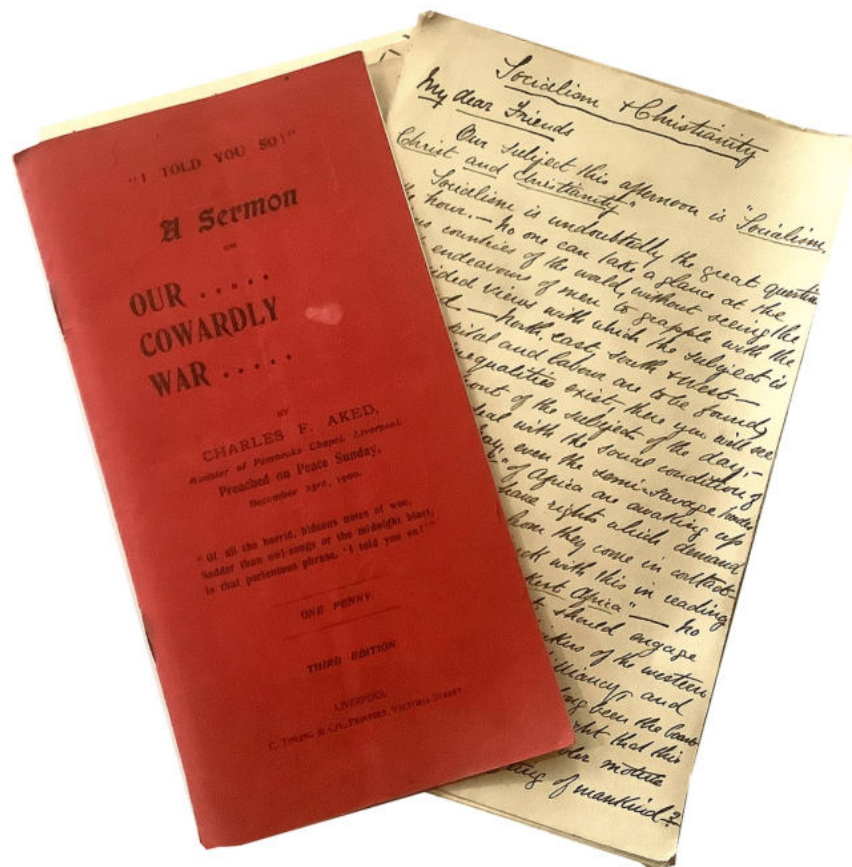 "I TOLD YOU SO!"
A Sermon
ON
OUR .....
COWARDLY
WAR .....
BY
CHARLES F. AKED,
Minister of Pembroke Chapel, Liverpool.
Preached on Peace Sunday,
December 23rd, 1900.
"Of all the horrid, hideous notes of woe,
Sadder than owl-songs or the midnight blast,
Is that portentous phrase, 'I told you so!'"
ONE PENNY.
THIRD EDITION
LIVERPOOL
C. TINLING & CO., PRINTERS, VICTORIA STREET
Socialism & Christianity
My dear Friends
Our subject this afternoon is "Socialism,
Christ and Christianity"
Socialism is undoubtedly the great question
hour. — No one can take a glance at the
countries of the world, without seeing the
endeavours of men to grapple with the
views with which the subject is
— North, East, South & West —
and labour are to be found,
inequalities exist, there you will see
of the subjects of the day, —
with the social condition of
even the semi-savage
of Africa are awaking up
rights which demand
they come in contact —
with this in reading
Africa" — No
should engage
of the western
and
long been the
that this
motive
of mankind?